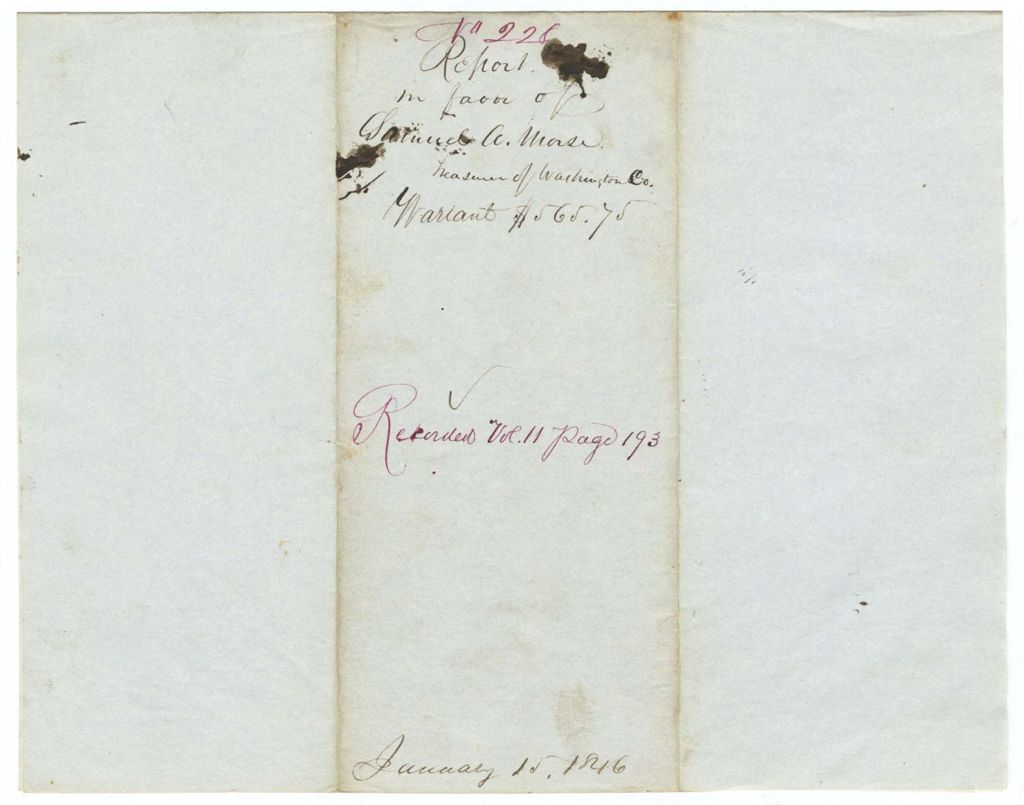 No 226
Report
in favor of
Samuel A. Morse
Treasurer of Washington Co.
Warrant $565.75
Recorded Vol. 11 Page 193
January 15, 1846